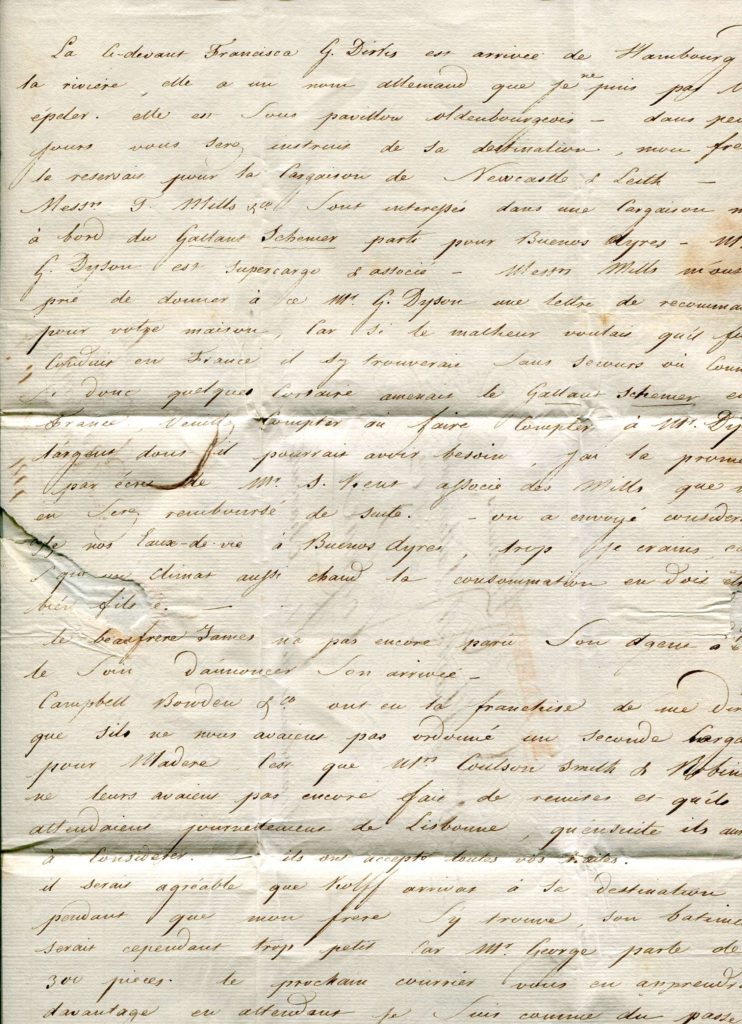 La ci-devant Francisca G. Dirks est arrivée de Hambourg
la rivière, elle a un nom allemand que je ne puis pas
épeler. elle est sous pavillon oldenbourgeois - dans peu
jours vous serez instruis de sa destination, mon fre
la reservais pour la Cargaison de Newcastle & Leith -
Messrs T. Mills & co Sont interessés dans une Cargaison
à bord du Gallant Schemer parti pour Buenos Ayres -
G. Dyson est supercargo & associé - Messrs Mills m'ont
prié de donner à ce Mr. G. Dyson une lettre de recomma
pour votre maison, Car si le malheur voulais qu'il fu
Conduit en France il s'y trouverais sans secours ou Conn
Si donc quelques Corsaire amenais le Gallant Schemer en
France, Veuillez Compter ou faire Compter à Mr. Dy
l'argent dont il pourrait avoir besoin, j'ai la prome
par écris de Mr. S. Kent associé des Mills que
en serez remboursé de suite. - on a envoyé considera
de nos Eaux-de-vie à Buenos Ayres, trop je crains,
un Climat aussi chaud la consommation en dois
bien
le beaufrere James na pas encore paru Son Agent à
le Soin d'annoncer Son arrivée -
Campbell Bowden & co ont eu la franchise de me dir
que s'ils ne nous avaient pas ordonné un seconde Carga
pour Madere C'est que Mrs Coulson Smith & Robin
ne leurs avaient pas encore fais de remises et qu'ils
attendaient journellement de Lisbonne, qu'ensuite ils
à Considerer. - ils ont accepté toutes vos traites.
il serait agréable que Wolff arrivas à sa destination
pendant que mon frere s'y trouve, son batime
serait cependant trop petit Car Mr George parle de
300 pièces. le prochain courrier vous en apprendr
davantage en attendant je Suis comme du passe